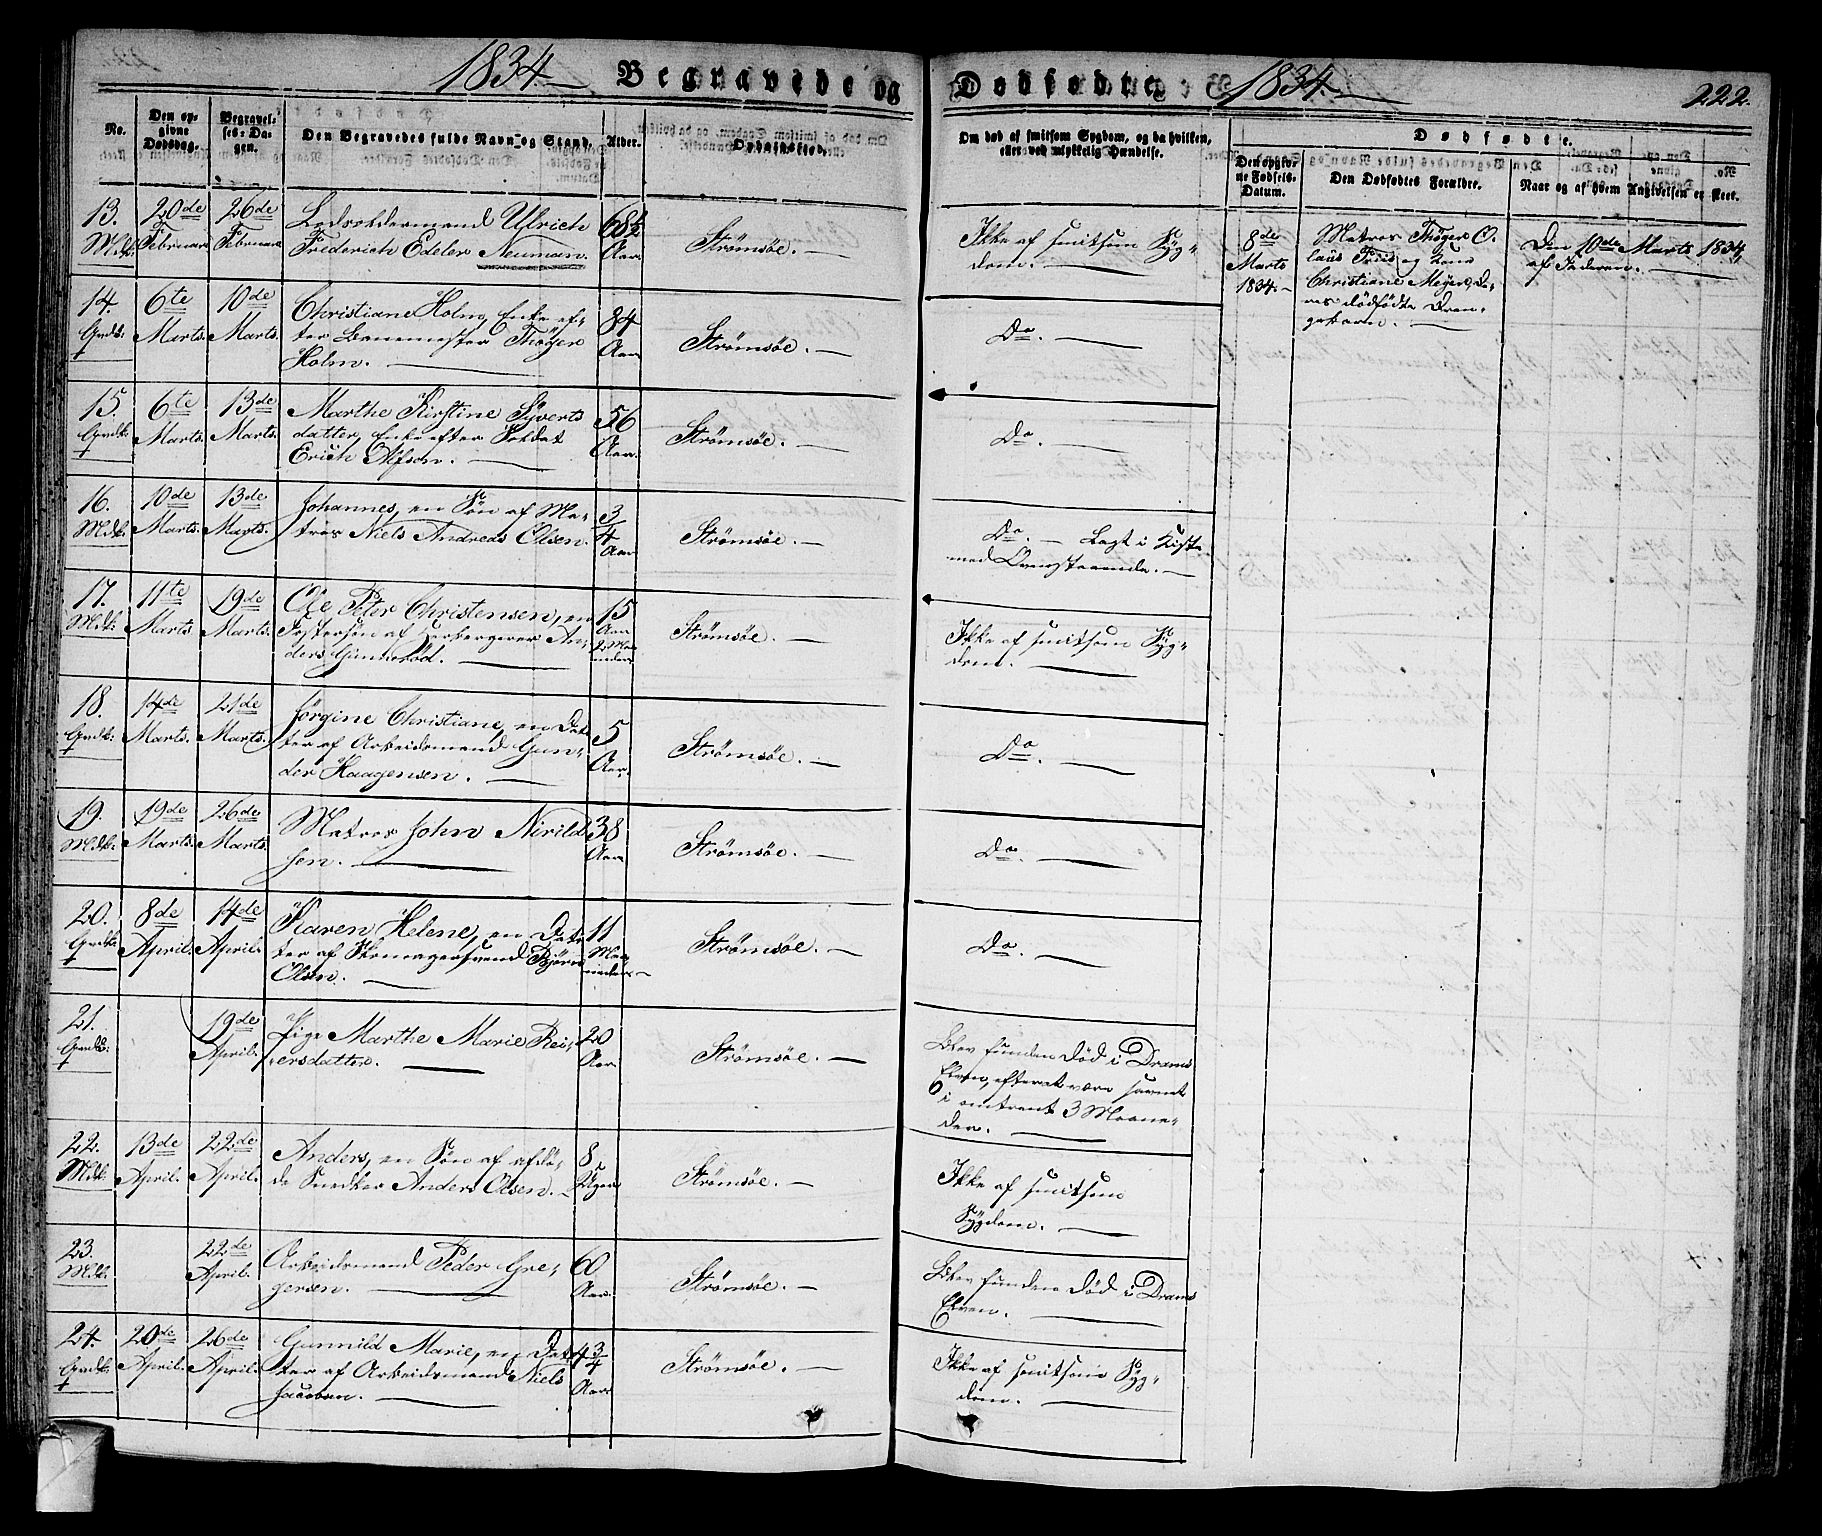 1834.
Begravede og
Dødfødte.
1834.
222.
No.
Den opgivne Dødsdag.
Begravelses-Dagen.
Den Begravedes fulde Navn og Stand.
Alder.
Opholdssted.
Om død af smitsom Sygdom, og da hvilken, eller ved ulykkelig Hændelse.
Dødfødte.
Den opgivne Fødsels-Datum.
Den Dødfødtes Forældre.
Naar og af hvem Angivelsen er skeet.
13. Mdk:
20de Februar
26de Februar
Lodsoldermand Ulrich
Friderich Edeler Neuman.
68½ Aar
Strømsøe.
Ikke af smitsom Syg-
dom.
8de Marts 1834.
Matros Thøger O-
laus Friis og Kone
Christiane Meyer, De-
res dødfødte Dren-
gebarn.
Den 10de Marts 1834
af Faderen.
14. Qvdk:
6te Marts.
10de Marts.
Christiane Holm, Enke ef-
ter Banemester Thøger
Holm.
84 Aar
Strømsøe.
Do.
15. Qvdk:
6te Marts.
13de Marts.
Marthe Kirstine Syverts
datter, Enke efter Soldat
Erich Alfsen.
56 Aar.
Strømsøe.
Do.
16. Mdk:
10de Marts.
13de Marts.
Johannes, en Søn af Ma-
tros Niels Andreas Olsen.
3/4 Aar
Strømsøe.
Do. Lagt i Kiste
med Ovenstaaende.
17. Mdk:
11te Marts
19de Marts.
Ole Peter Christensen, en
Fostersøn af Herbergerer An-
ders Gunnerød.
15 Aar 2 Maa-
neder
Strømsøe.
Ikke af smitsom Syg-
dom.
18. Qvdk:
14de Marts.
21de Marts.
Jørgine Christiane, en Dat
ter af Arbeidsmand Gun-
der Haagensen.
5 Aar.
Strømsøe.
Do.
19. Mdk:
19de Marts.
26de Marts.
Matros John Nirild
sen.
38 Aar
Strømsøe.
Do.
20. Qvdk:
8de April.
14de April.
Karen Helene, en Dat-
ter af Skomagersvend Bjørn
Olsen.
11 Maa-
neder
Strømsøe.
Do.
21. Qvdk:
19de April.
Pige Marthe Marie Rei-
ersdatter.
20 Aar
Strømsøe.
Blev funden død i Drams
Elven, efter at være savnet
i omtrent 3 Maane-
der.
22. Mdk:
13de April.
22de April.
Anders, en Søn af afdø-
de Snedker Anders Olsen.
8 Uger
Strømsøe.
Ikke af smitsom
Sygdom.
23. Mdk:
22de April.
Arbeidsmand Peder Gre-
gersen.
60 Aar.
Strømsøe.
Blev funden død i Drams
Elven.
24. Qvdk:
20de April.
26de April.
Gunnild Marie, en Dat
ter af Arbeidsmand Niels
Jacobsen.
4 3/4 Aar.
Strømsøe.
Ikke af smitsom Syg-
dom.